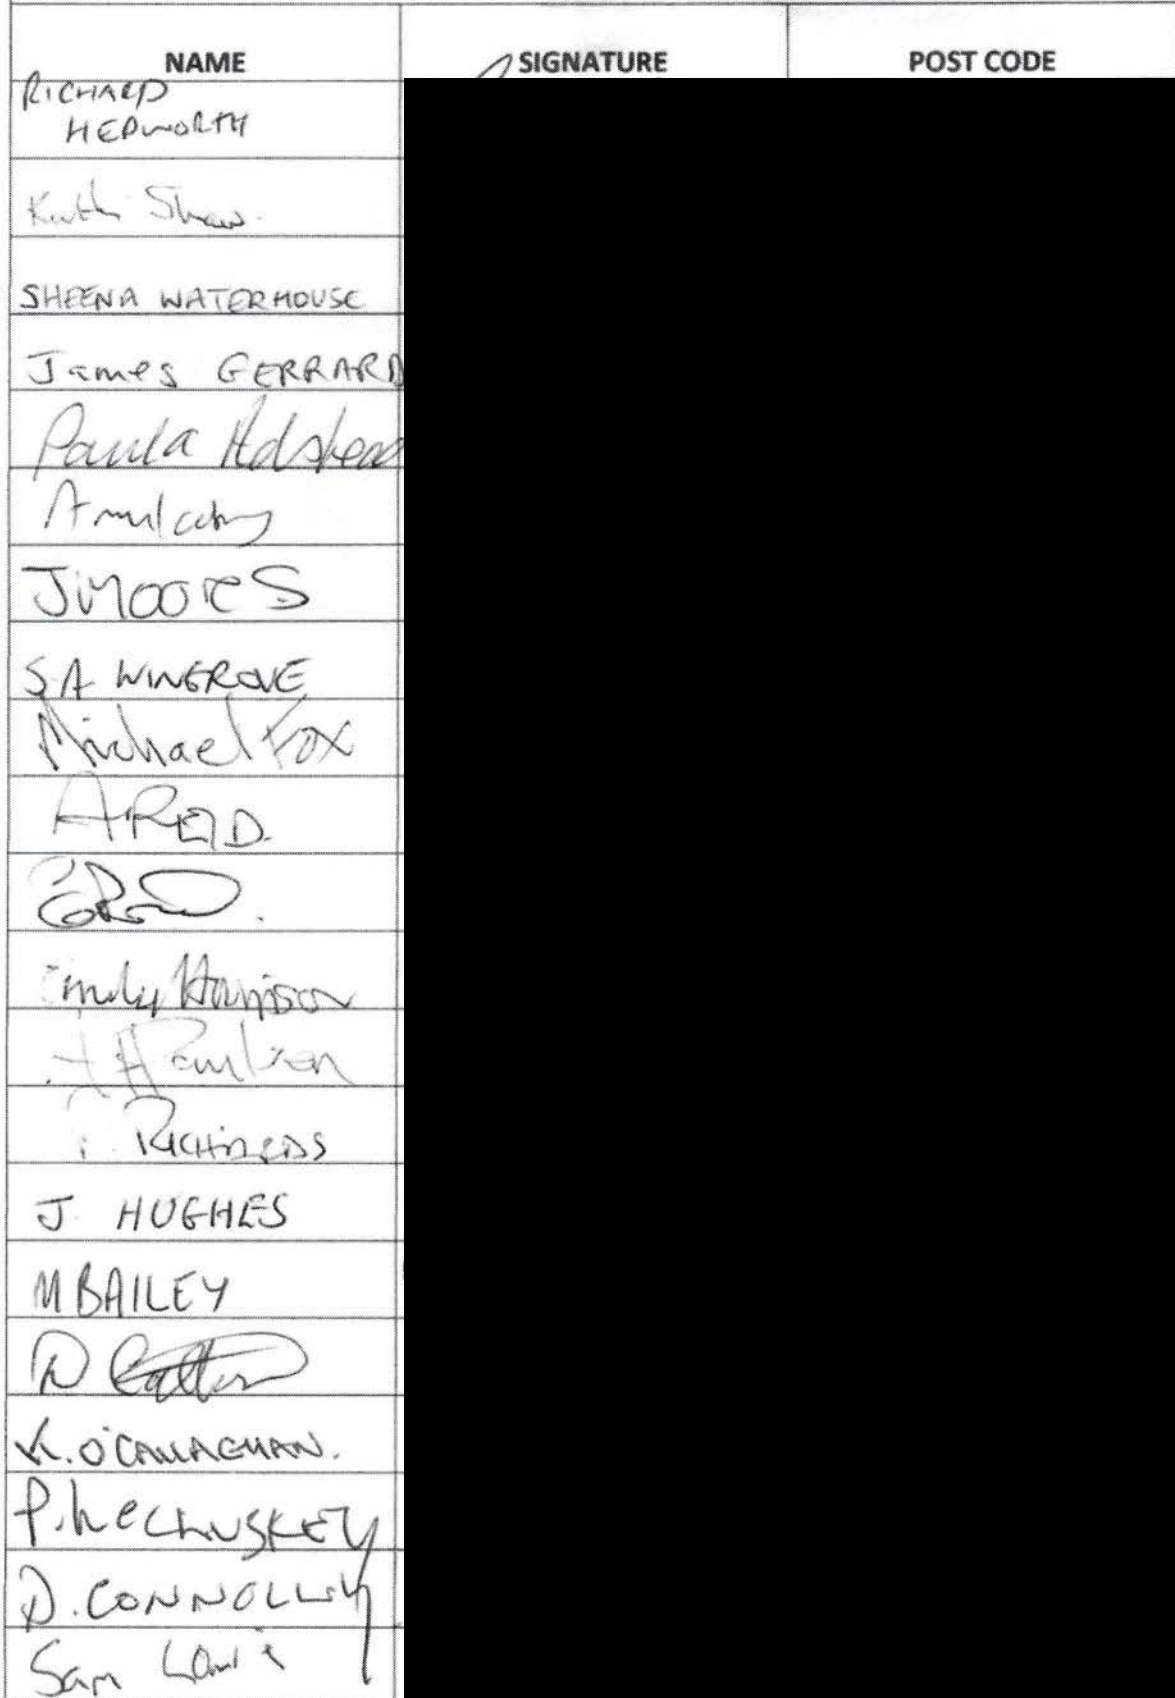 NAME SIGNATURE POST CODE
RICHARD
HEPWORTH
Kath Shaw.
SHEENA WATERHOUSE
James GERRARD
Paula Adshead
A mulcahy
J MOORES
S A WINGROVE
Michael Fox
A REID.
Emily Harrison
RICHARDS
J. HUGHES
M BAILEY
D
K. O'CALLAGHAN.
P. McCLUSKEY
D. CONNOLLY
Sam